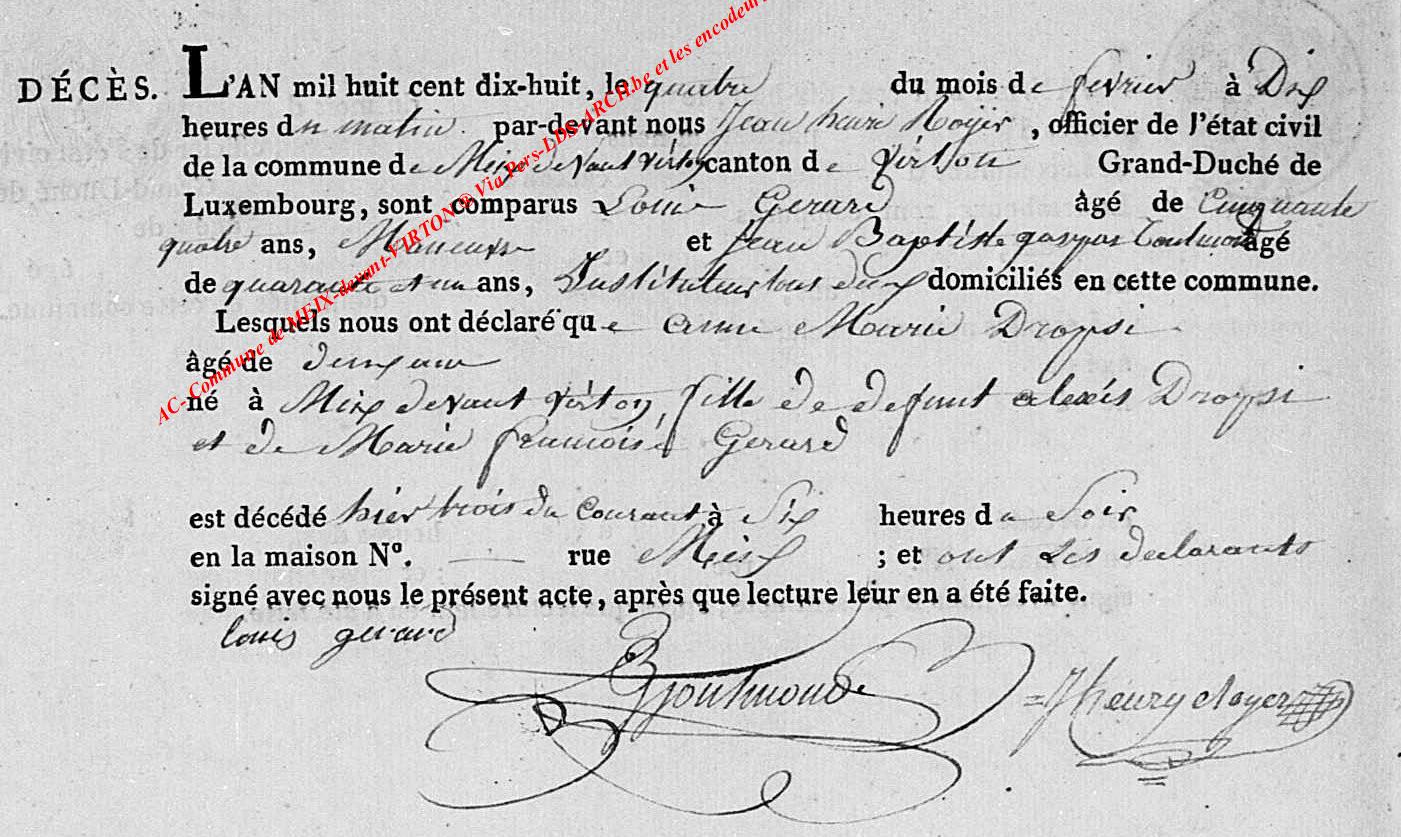 DÉCÈS. L'AN mil huit cent dix-huit, le quatre du mois de fevrier à Dix
heures du matin par-devant nous Jean henri Royer, officier de l'état civil
de la commune de Meix devant virton canton de virton Grand-Duché de
Luxembourg, sont comparus Louis Gerard âgé de Cinquante
quatre ans, Maneuvre et Jean Baptiste gaspar Toulmonde âgé
de quarante et un ans, Instituteur tous deux domiciliés en cette commune.
Lesquels nous ont déclaré que anne Marie Dropsi
âgé de deux ans
né à Meix devant virton, fille de defunt alexis Dropsi
et de Marie francoise Gerard
est décédé hier trois du Courant à Six heures du Soir
en la maison N°. — rue Meix ; et ont les declarants
signé avec nous le présent acte, après que lecture leur en a été faite.
louis gerard
Toulmonde = J henry Royer
AC- Commune de MEIX-devant-VIRTON ® Via Pers-LDS-ARCH.be et les encodeur